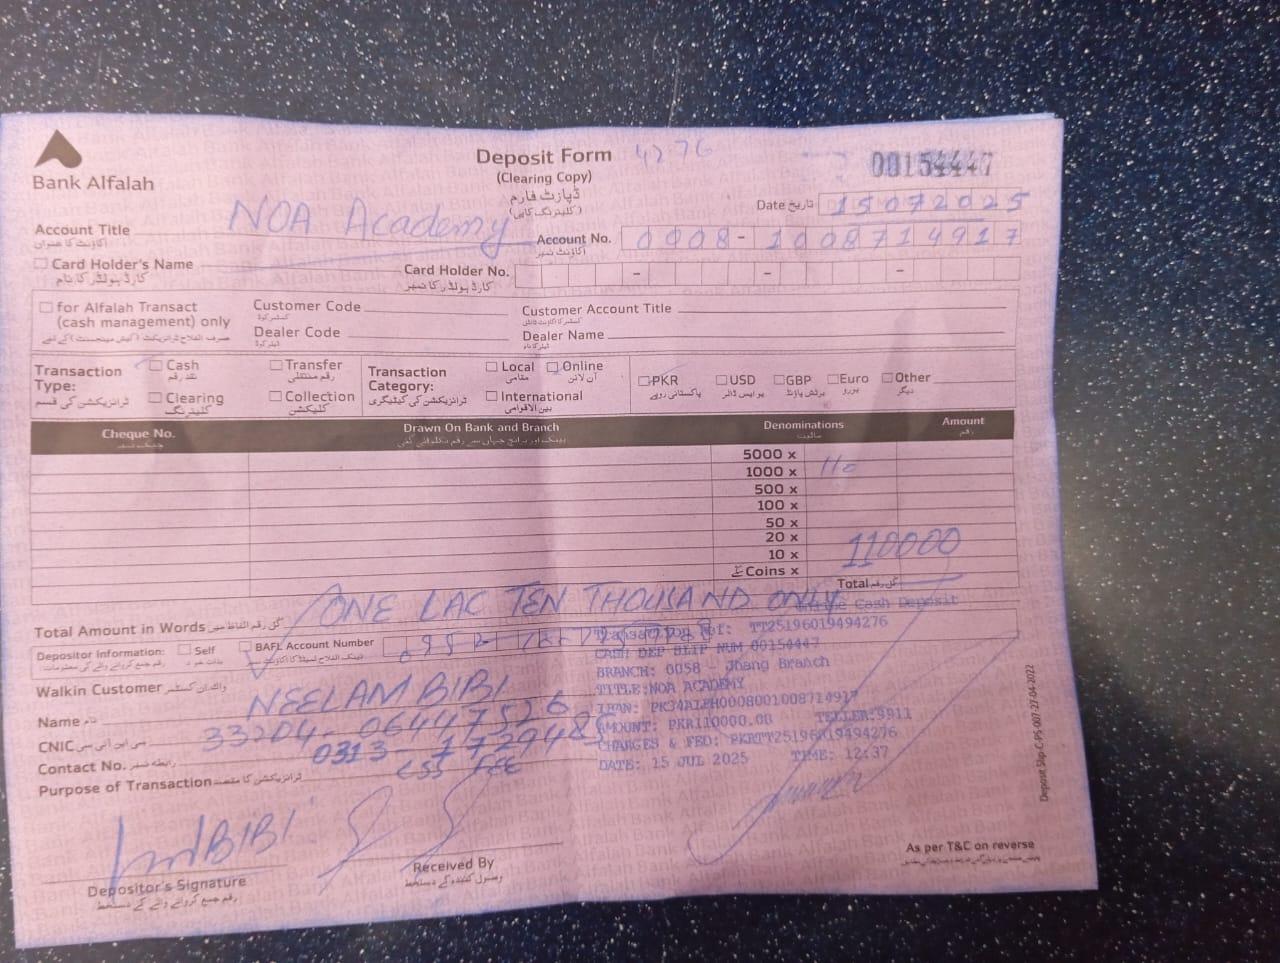 Bank Alfalah
Deposit Form 4276
(Clearing Copy)
ڈپازٹ فارم
(کلیئرنگ کاپی)
00154447
Date تاریخ 15072025
Account Title NOA Academy
اکاؤنٹ کا عنوان
Account No. 0008-1008714917
اکاؤنٹ نمبر
Card Holder's Name
کارڈ ہولڈر کا نام
Card Holder No.
کارڈ ہولڈر کا نمبر
for Alfalah Transact
(cash management) only
Customer Code
Customer Account Title
Dealer Code
Dealer Name
Transaction
Type:
ٹرانزیکشن کی قسم
Cash
نقد رقم
Transfer
رقم منتقلی
Clearing
کلیئرنگ
Collection
کلیکشن
Transaction
Category:
ٹرانزیکشن کی کیٹیگری
Local
مقامی
Online
آن لائن
International
بین الاقوامی
PKR
پاکستانی روپے
USD
یو ایس ڈالر
GBP
برٹش پاؤنڈ
Euro
یورو
Other
دیگر
Cheque No.
Drawn On Bank and Branch
Denominations
Amount
رقم
5000 x
1000 x 110
500 x
100 x
50 x
20 x
10 x
Coins x
110000
Total کل رقم
Total Amount in Words ONE LAC TEN THOUSAND ONLY
Depositor Information:
Self
BAFL Account Number
Walkin Customer
Name نام NEELAM BIBI
CNIC سی این آئی سی 33204-0644752
Contact No. رابطہ نمبر 0313-172948
Purpose of Transaction CSS FEE
Cash Deposit
Transaction Ref: TT25196019494276
CASH DEP SLIP NUM 00154447
BRANCH: 0058 - Jhang Branch
TITLE:NOA ACADEMY
IBAN: PK34ALFH0008001008714917
AMOUNT: PKR110000.00 TELLER:9911
CHARGES & FED: PKRTT25196019494276
DATE: 15 JUL 2025 TIME: 12:37
BIBI
Depositor's Signature
رقم جمع کروانے والے کے دستخط
Received By
وصول کنندہ کے دستخط
As per T&C on reverse
Deposit Slip-C-PS-007-27-04-2022